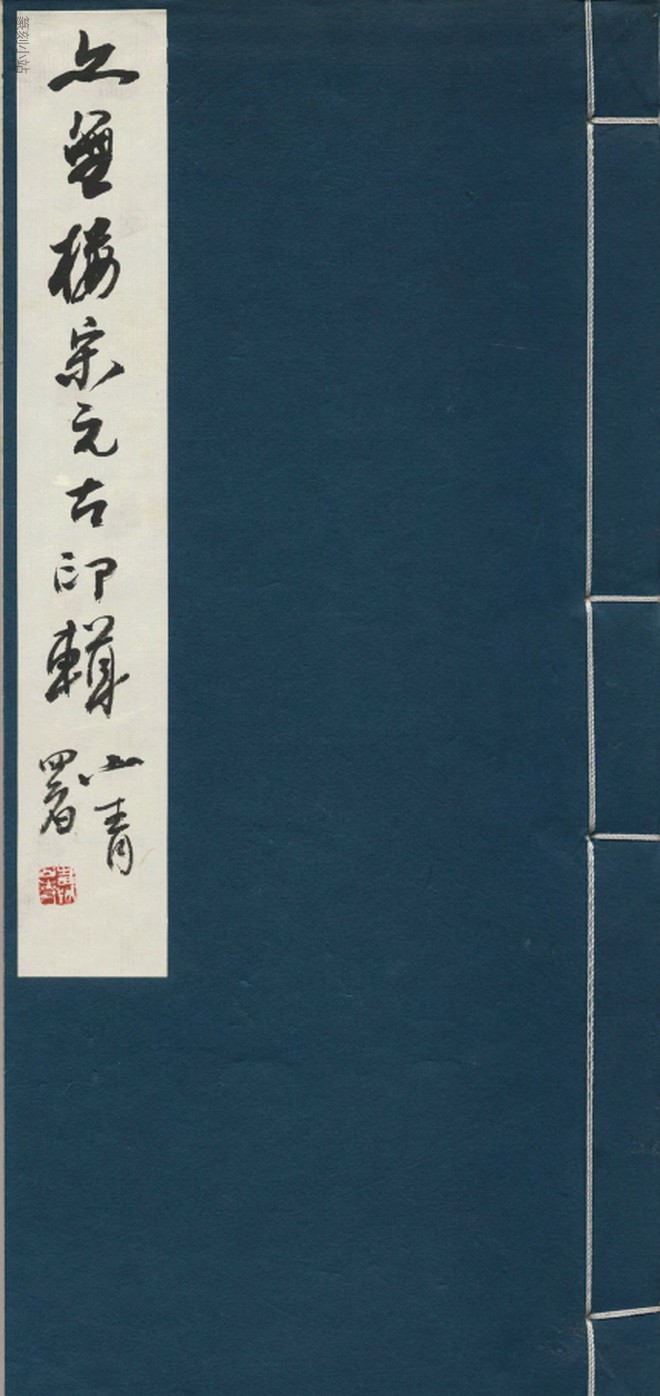 篆刻小站
亦無樓宋元古印輯
山青
署